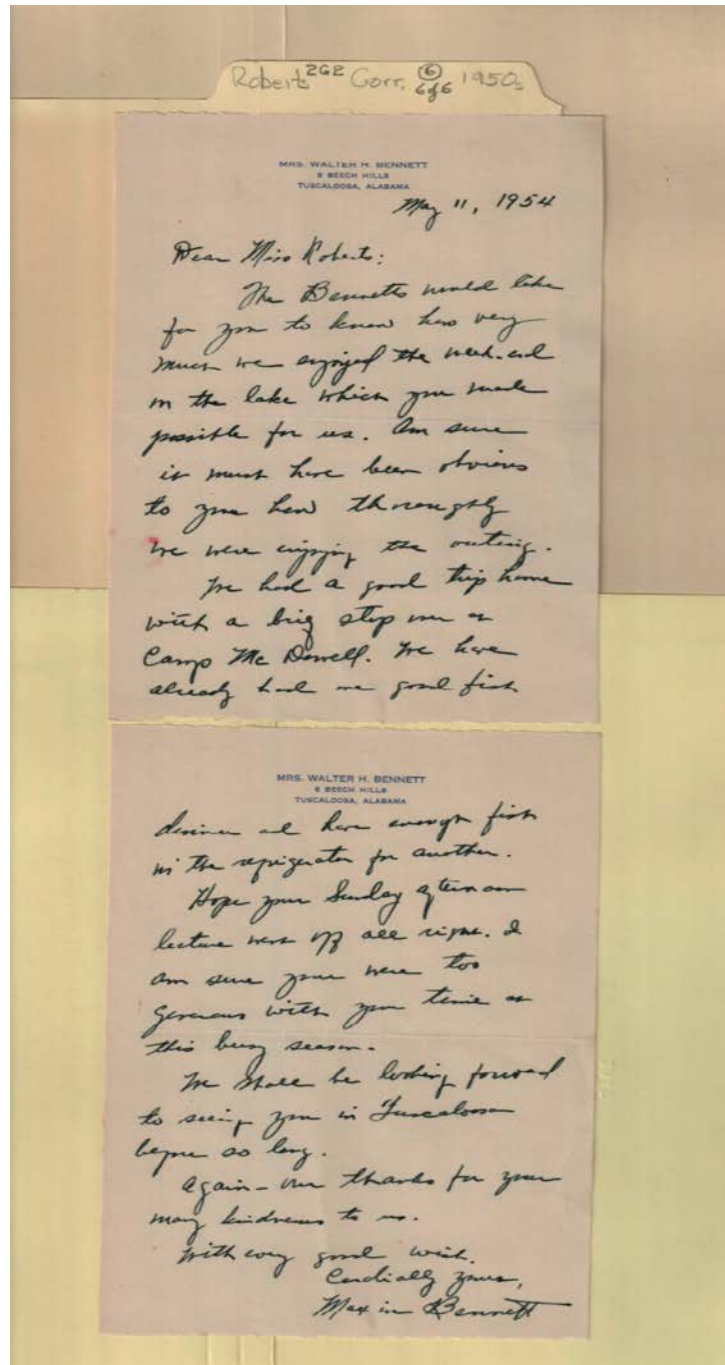 Roberts 2G2 Corr. 6 6 of 6 1950s
MRS. WALTER H. BENNETT
5 BEECH HILLS
TUSCALOOSA, ALABAMA
May 11, 1954
Dear Miss Roberts:
The Bennetts would like
for you to know how very
much we enjoyed the week-end
on the lake which you made
possible for us. Am sure
it must have been obvious
to you how thoroughly
we were enjoying the outing.
We had a good trip home
with a big stop over at
Camp McDowell. We have
already had one good fish
MRS. WALTER H. BENNETT
5 BEECH HILLS
TUSCALOOSA, ALABAMA
dinner and have enough fish
in the refrigerator for another.
Hope your Sunday afternoon
lecture went off all right. I
am sure you were too
generous with your time at
this busy season.
We shall be looking forward
to seeing you in Tuscaloosa
before so long.
Again - our thanks for your
many kindnesses to us.
With every good wish.
Cordially yours,
Maxine Bennett